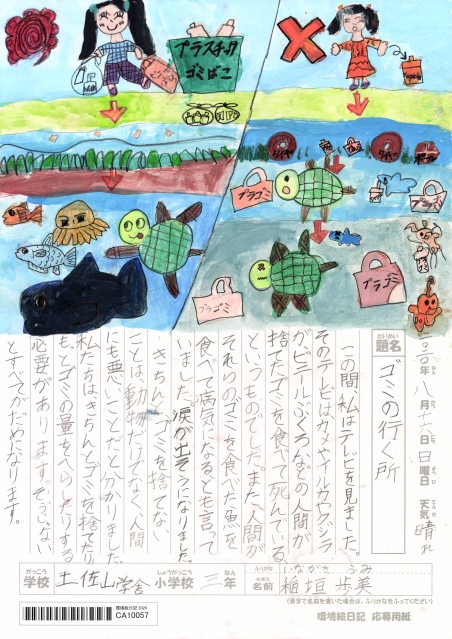 プラスチック
ゴミばこ
プラゴミ
プラゴミ
プラゴミ
プラゴミ
だいめい
題名
ゴミの行く所
年
八月十六日日曜日
天気
晴れ
この間、私はテレビを見ました。
そのテレビはカメやイルカやクジラ
がビニールぶくろなどの人間が
捨てたゴミを食べて死んでいる
というものでした。また人間が
それらのゴミを食べた魚を
食べて病気になるとも言って
いました。涙が出そうになりました。
きちんとゴミを捨てない
ことは、動物だけでなく、人間
にも悪いことだと分かりました。
私たちはきちんとゴミを捨てたり
もっとゴミの量をへらしたりする
必要があります。そうしない
とすべてがだめになります。
がっこう
学校
土佐山学舎
しょうがっこう
小学校
三
ねん
年
ふりがな
いながき ふみ
名前
稲垣 歩美
(漢字で名前を書いた場合は、ふりがなをふってください)
環境絵日記 2020
CA10057
環境絵日記 応募用紙